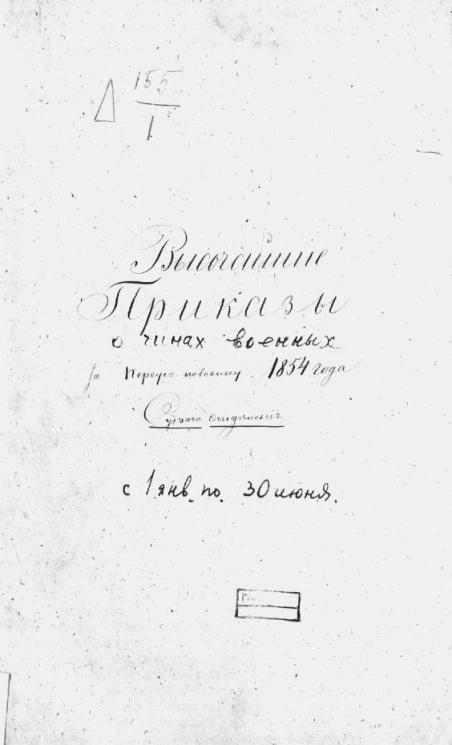 Δ 155
1
Высочайшие
Приказы
о чинах военных
за первую половину 1854 года
с 1 янв. по 30 июня.